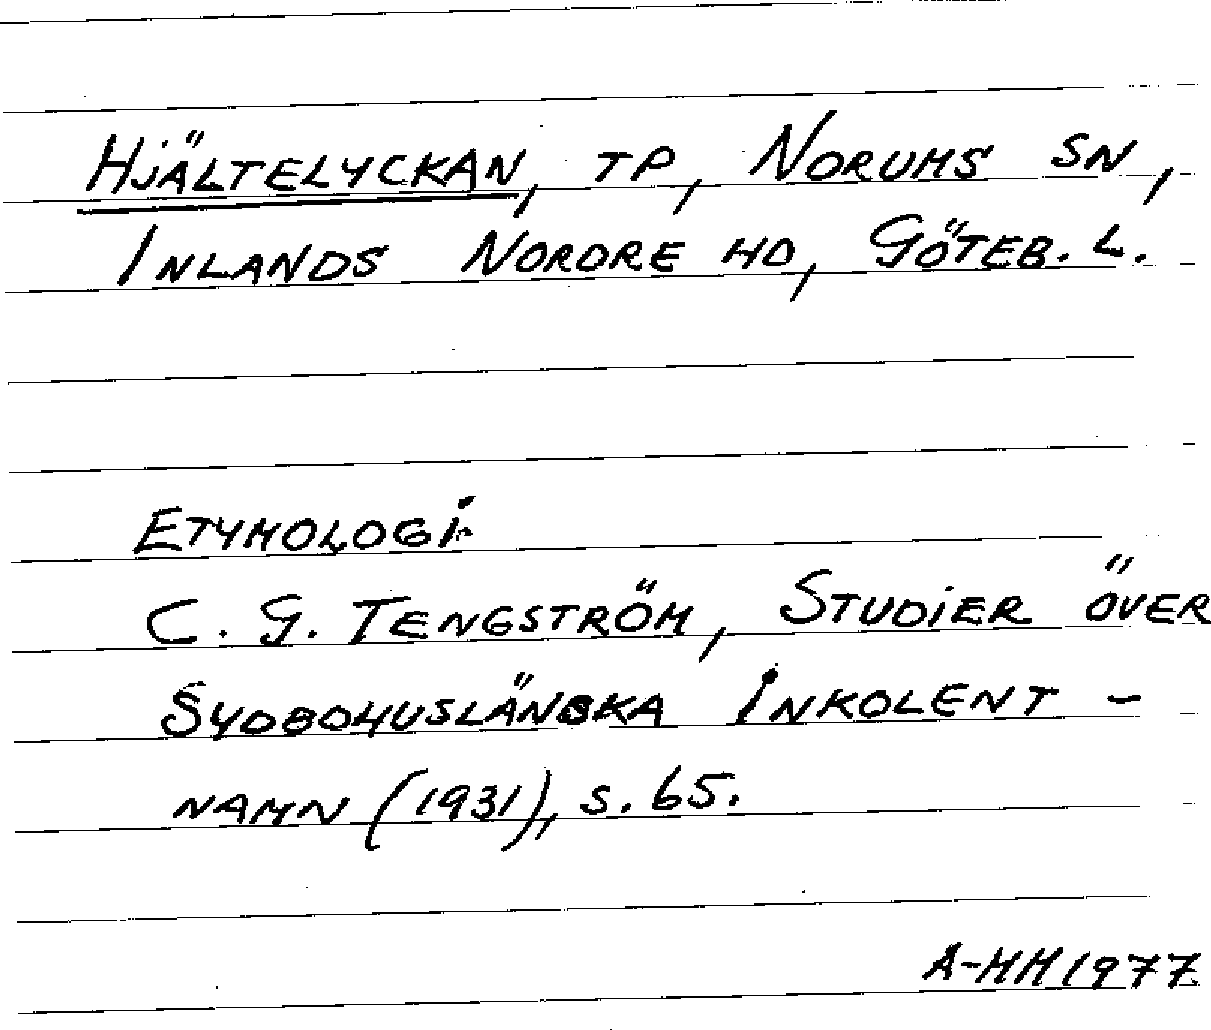 HJÄLTELYCKAN, TP, NORUMS SN,
INLANDS NORDRE HD, GÖTEB. L.
ETYMOLOGI
C. G. TENGSTRÖM, STUDIER ÖVER
SYDBOHUSLÄNSKA INKOLENT-
NAMN (1931), S. 65.
A-MH 1977